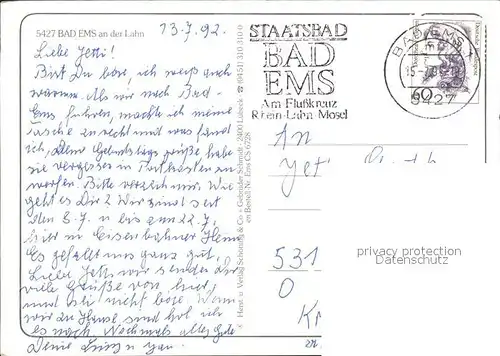 5427 BAD EMS an der Lahn
13.7.92.
Liebe Jetti!
Bist Du böse, ich weiß auch
warum. Als wir nach Bad-
Ems fuhren, machte ich meine
Tasche zurecht und was fand
ich, Deine Geburtstagsgrüße habe
vergessen in Postkasten zu
werfen. Bitte verzeih mir. Wie
geht es Dir? Wir sind seit
dem 8.7. u bis zum 22.7.
hier im Eisenbahner Heim
Es gefällt uns ganz gut.
Liebe Jetti wir senden Dir
viele Grüße von hier,
und sei nicht böse. Wenn
wir zu Hause sind hol ich
es nach. Nochmals alles Gute
Deine
STAATSBAD
BAD
EMS
Am Flußkreuz
Rhein-Lahn Mosel
BAD EMS 1
5427
60
An
531
0
privacy protection
Datenschutz